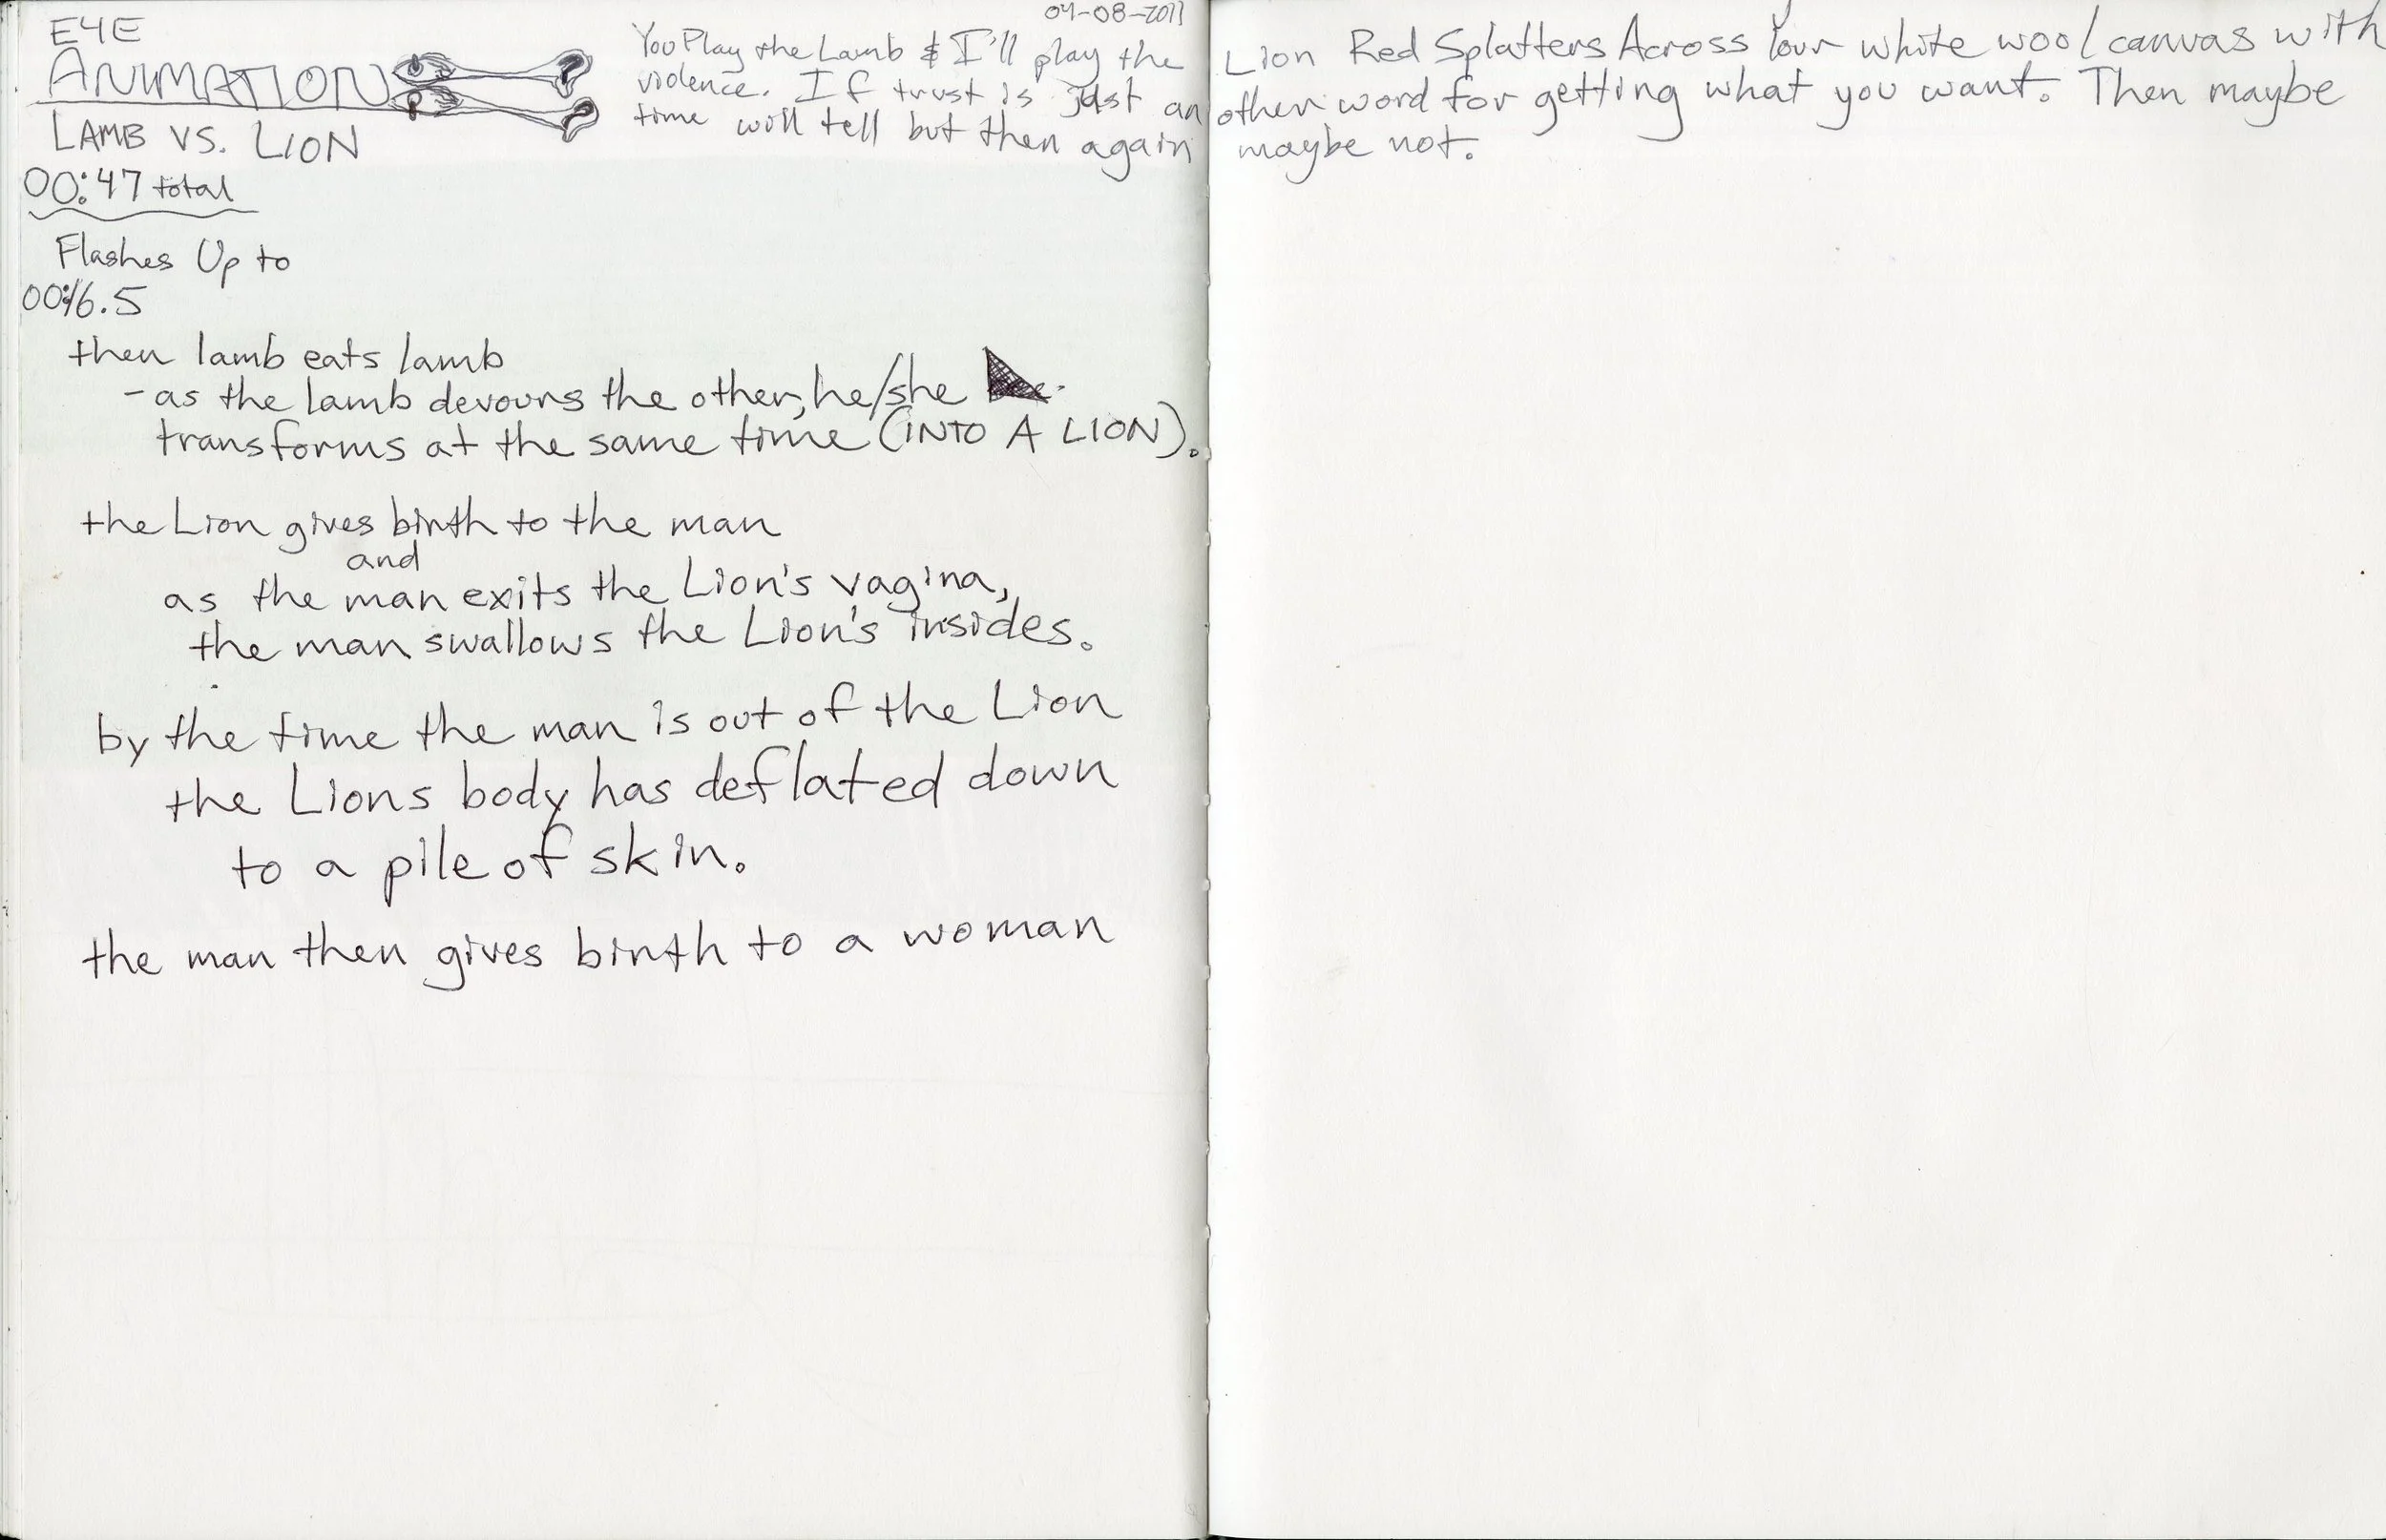 04-08-2011
E4E
ANIMATION
LAMB VS. LION
00:47 total
You Play the Lamb & I'll play the Lion Red Splatters Across Your white wool canvas with
violence. If trust is just an other word for getting what you want. Then maybe
time will tell but then again maybe not.
Flashes Up to
00:16.5
then lamb eats lamb
- as the lamb devours the other, he/she
transforms at the same time (INTO A LION).
the Lion gives birth to the man
and
as the man exits the Lion's vagina,
the man swallows the Lion's insides.
by the time the man is out of the Lion
the Lions body has deflated down
to a pile of skin.
the man then gives birth to a woman